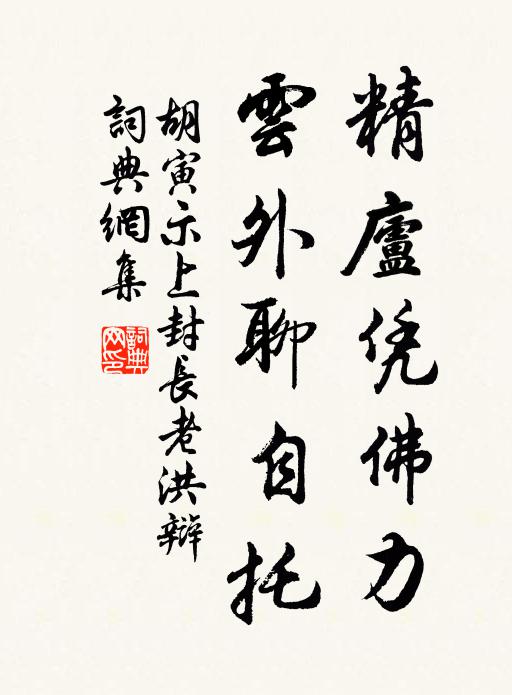 精廬凭佛力
雲外聊自托
胡寅示上封長老洪辯
詞典網集
詞典網印